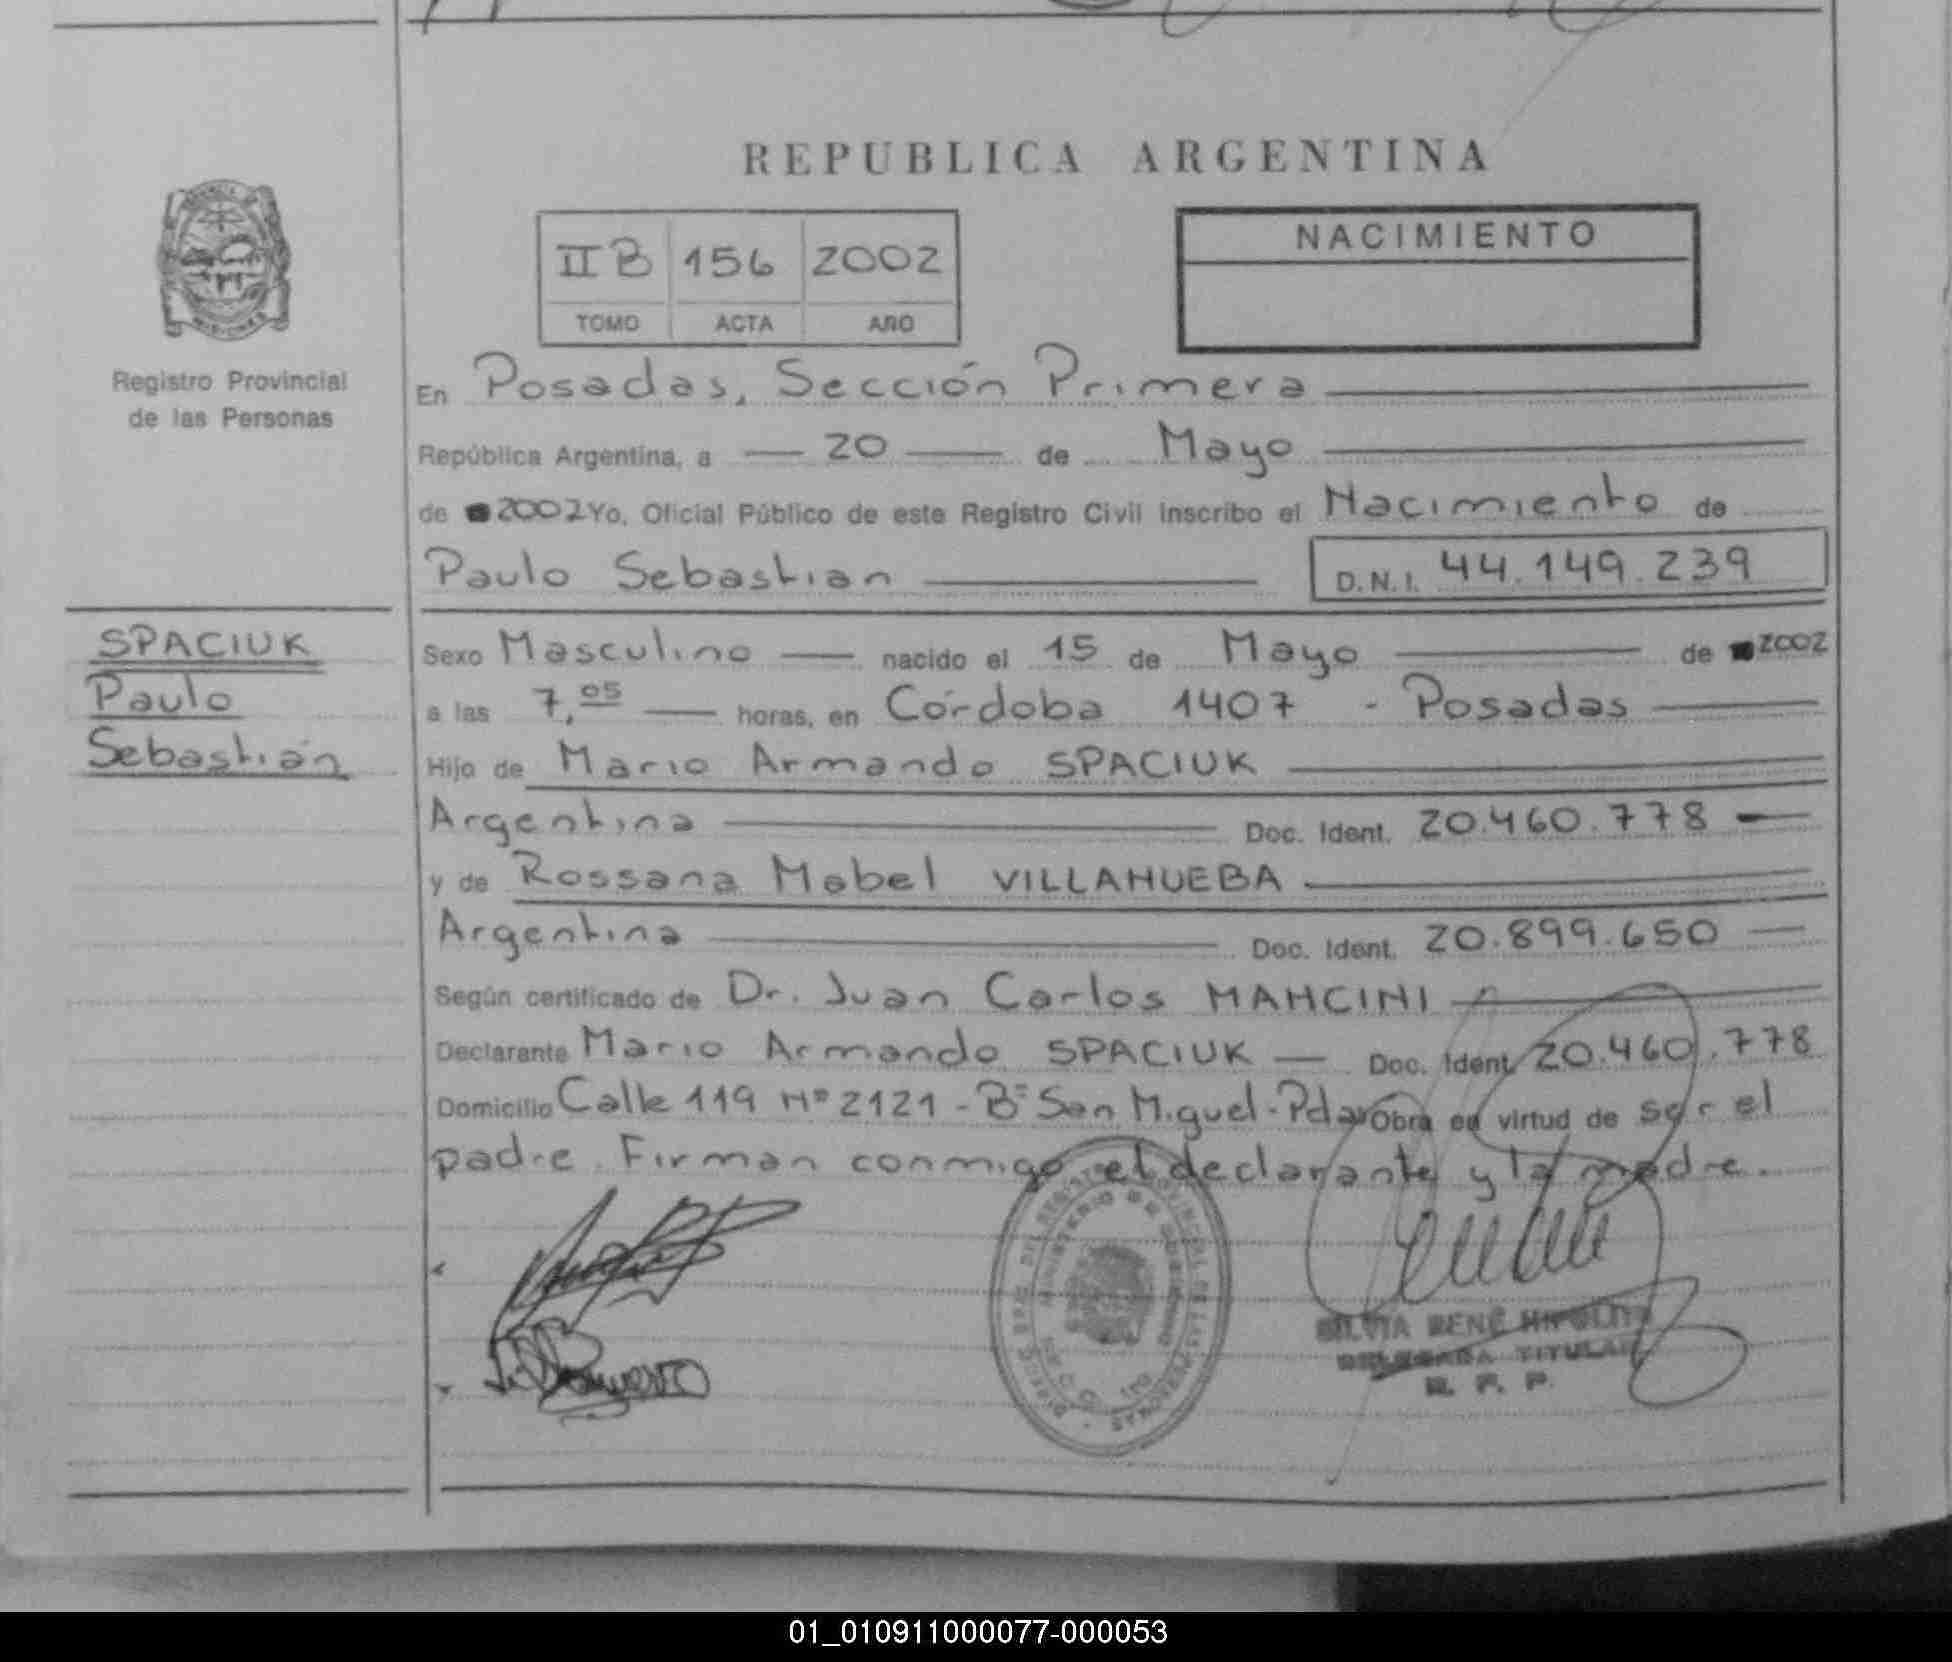 REPUBLICA ARGENTINA
II B 156 2002
TOMO ACTA AÑO
NACIMIENTO
Registro Provincial
de las Personas
En Posadas, Sección Primera
República Argentina, a 20 de Mayo
de 2002 Yo, Oficial Público de este Registro Civil inscribo el Nacimiento de
Paulo Sebastian D.N.I. 44.149.239
SPACIUK
Paulo
Sebastián
Sexo Masculino nacido el 15 de Mayo de 2002
a las 7,05 horas, en Córdoba 1407 - Posadas
Hijo de Mario Armando SPACIUK
Argentina Doc. Ident. 20.460.778
y de Rossana Mabel VILLANUEBA
Argentina Doc. Ident. 20.899.650
Según certificado de Dr. Juan Carlos MANCINI
Declarante Mario Armando SPACIUK Doc. Ident. 20.460.778
Domicilio Calle 119 Nº 2121 - Bº San Miguel - Pdas Obra en virtud de ser el
padre. Firman conmigo el declarante y la madre.
MINISTERIO DE GOBIERNO
SILVIA RENÉ HIPOLITO
DELEGADA TITULAR
R. P. P.
01_010911000077-000053